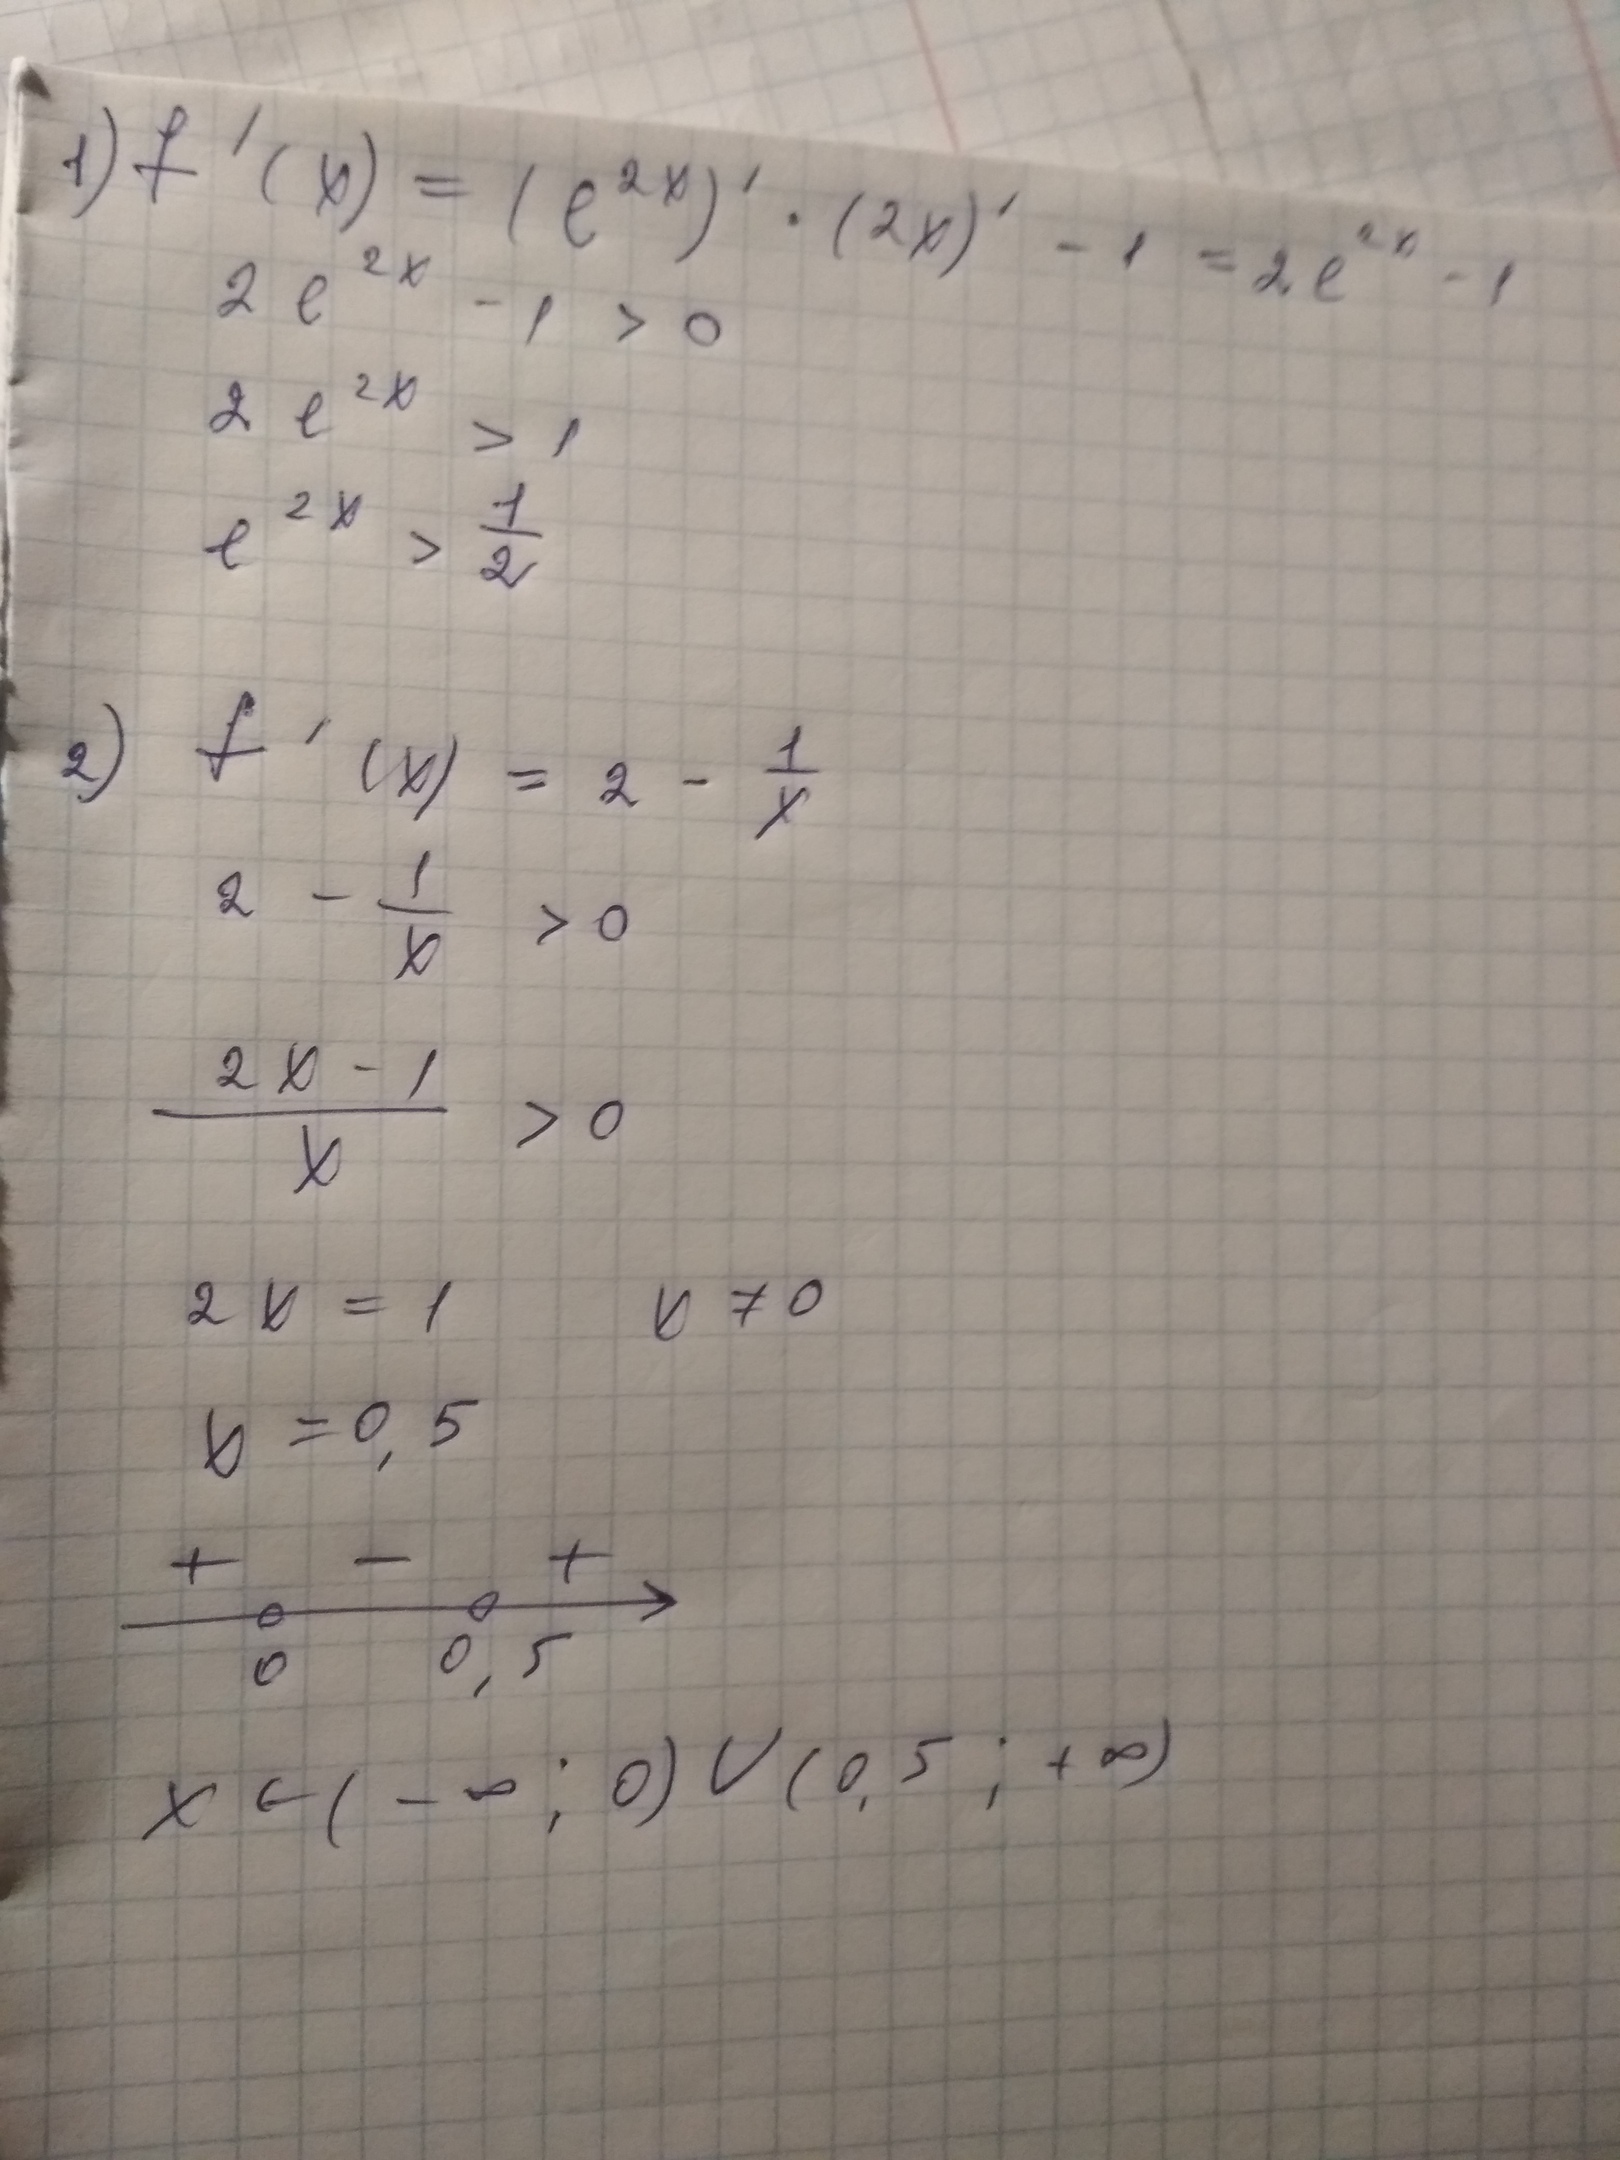 1) f'(x) = (e^{2x})' · (2x)' - 1 = 2e^{2x} - 1
2e^{2x} - 1 > 0
2e^{2x} > 1
e^{2x} > 1/2
2) f'(x) = 2 - 1/x
2 - 1/x > 0
(2x - 1)/x > 0
2x = 1 x ≠ 0
x = 0,5
+ - +
0 0,5
x ∈ (-∞; 0) ∪ (0,5; +∞)